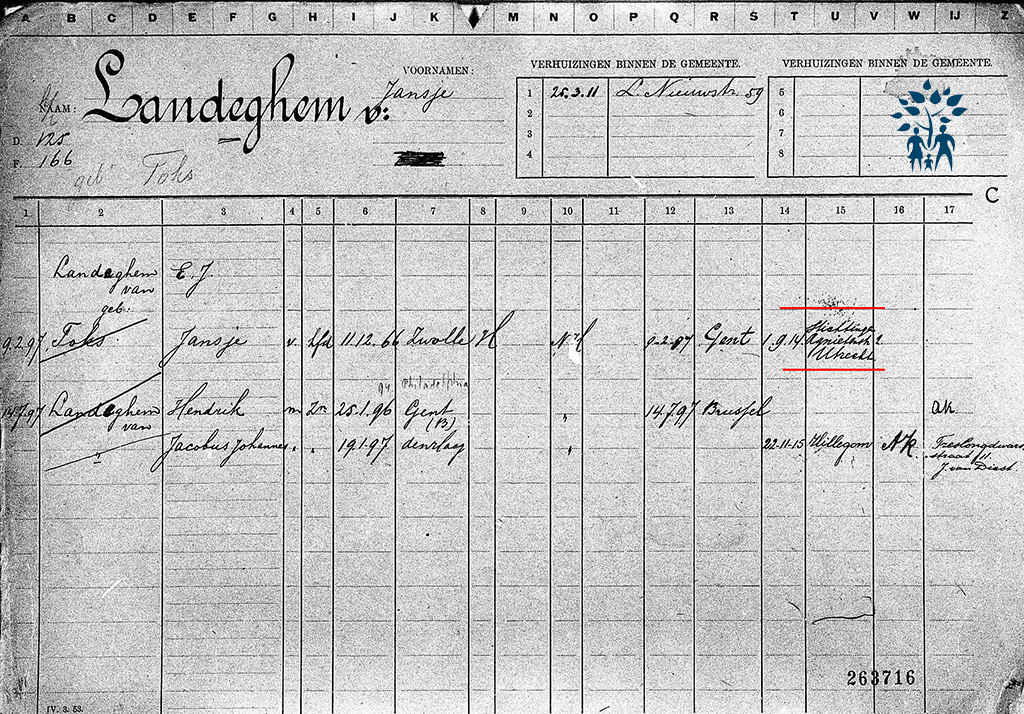 A B C D E F G H I J K M N O P Q R S T U V W IJ Z
NAAM: Landeghem v:
VOORNAMEN:
Jansje
D. 125
F. 166
geb. Toks
VERHUIZINGEN BINNEN DE GEMEENTE.
1 25.3.11 L. Nieuwstr. 59
2
3
4
VERHUIZINGEN BINNEN DE GEMEENTE.
5
6
7
8
C
1 2 3 4 5 6 7 8 9 10 11 12 13 14 15 16 17
Landeghem E. J.
van
geb:
9.2.97 Toks Jansje v. hfd 11.12.66 Zwolle H N.H 9-2-97 Gent 1.9.14 Stichtinge
Utrecht
Philadelphia
14.7.97 Landeghem Hendrik m Zn 25.1.96 Gent „ 14.7.97 Brussel ak
van (B)
„ Jacobus Johannes „ „ 19.1.97 den Haag „ 22-11-15 Hillegom NK.
straat 11.
J. van Diest
263716
IV. 3. 53.